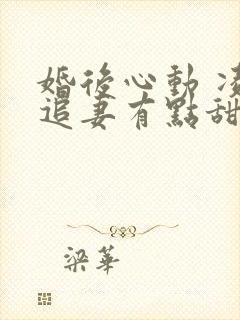 婚後心動 凌
追妻有點甜
梁華